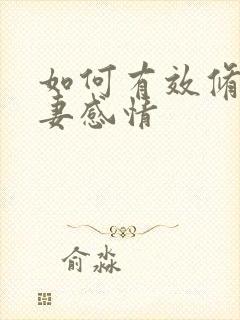 如何有效修
妻感情
俞淼